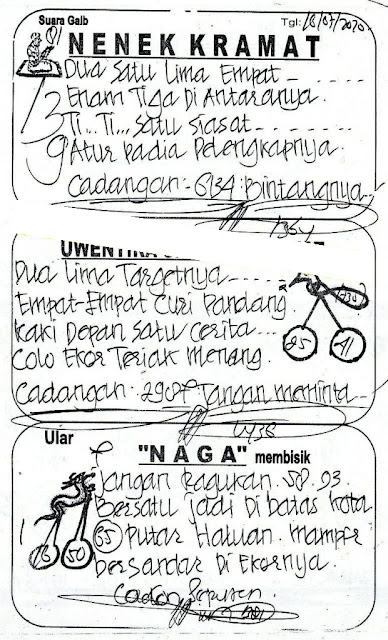 Suara Gaib
Tgl: 18/07/2020
NENEK KRAMAT
Dua Satu Lima Empat
Enam Tiga Di Antaranya.
Ti... Ti... Satu Siasat
Atur Padia Pelengkapnya.
Cadangan: 6134: Bintangnya
Dua Lima Targetnya
Empat-Empat Curi Pandang
Kaki Depan Satu Cerita...
Colo Ekor Teriak Menang.
25 41
Cadangan: Tangan meminta
Ular
"NAGA" membisik
Jangan Ragukan. 58.93.
Bersatu jadi Di batas kota
85 Putar Haluan. Mampir
bersandar Di Ekornya.
50